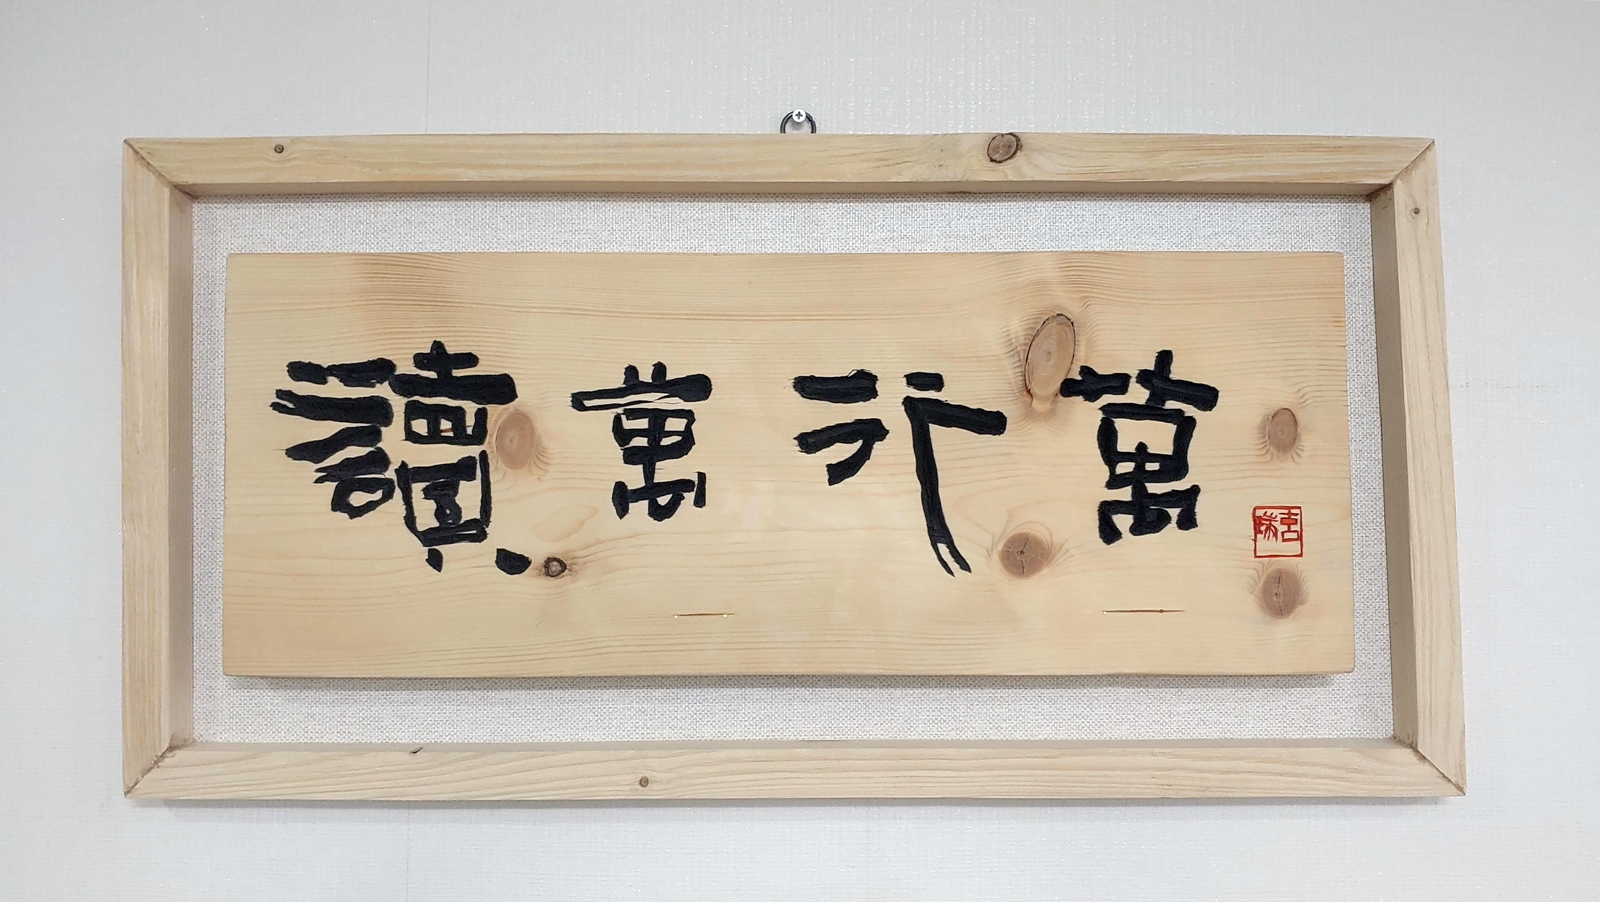 萬行萬讀
吉瑞